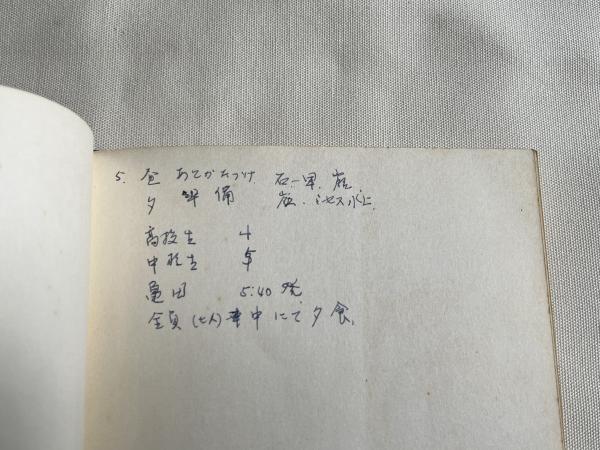 5. 昼 あとかたづけ 石一軍.
夕 準備 ミセス水上
高校生 4
中学生 5
亀田 5:40 発.
全員(七人)車中にて夕食.